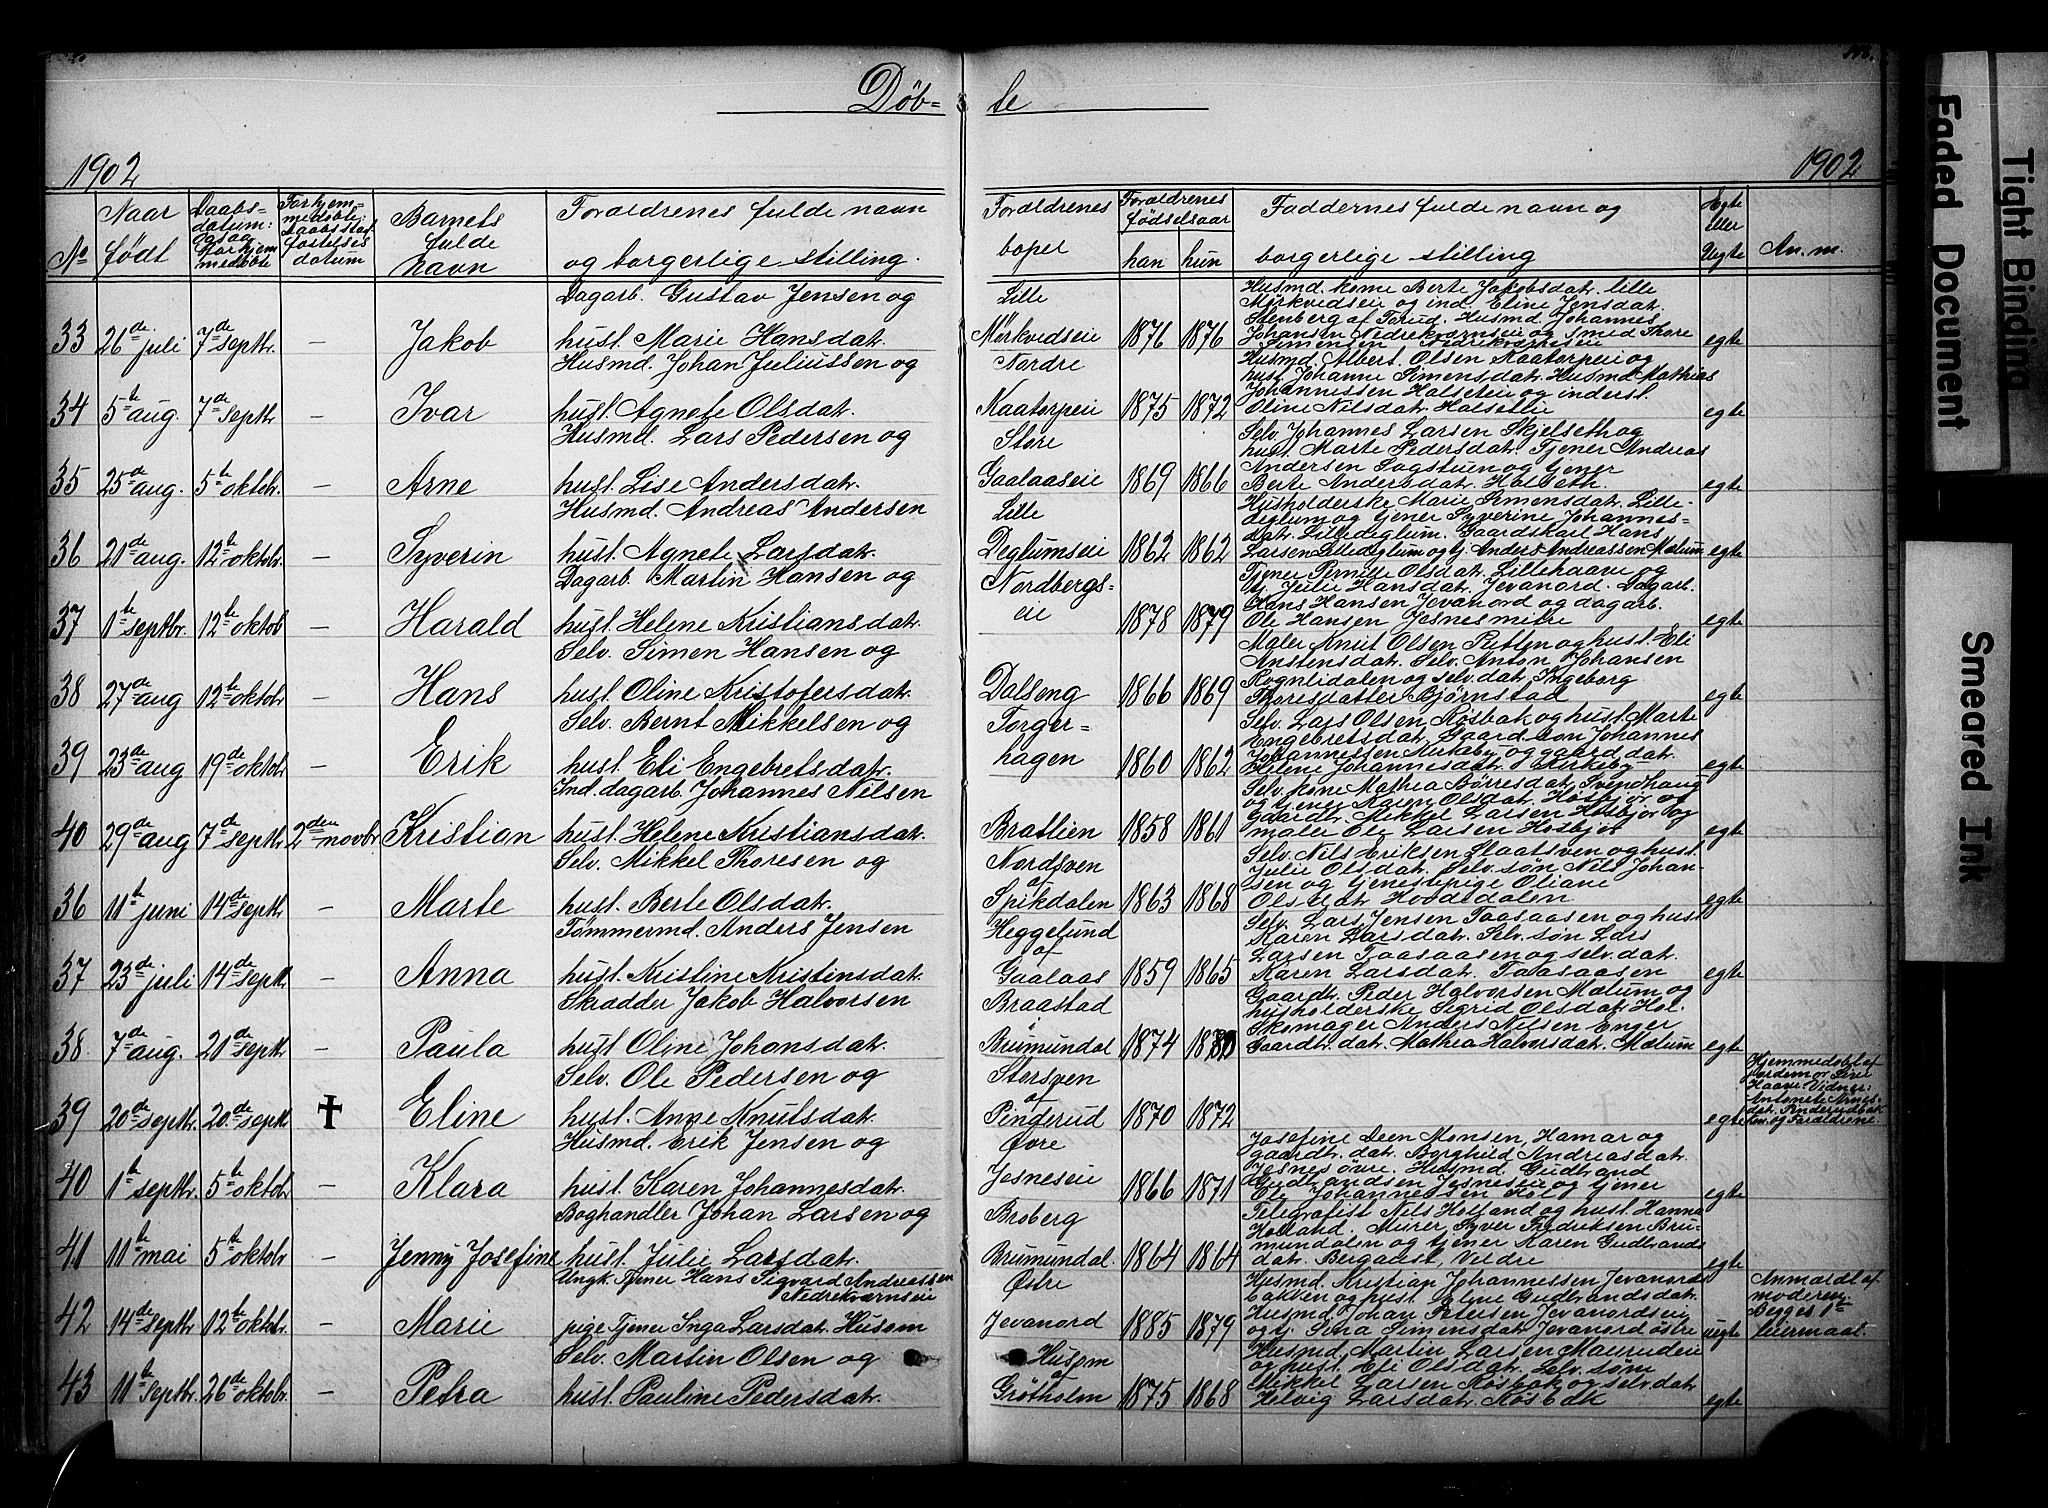 Døb= te
1902 1902
No Naar født Daabsdatum: ogsaa for hjemmedøbte For hjemmedøbte: Daabsstadfæstelsesdatum Barnets fulde navn Forældrenes fulde navn og borgerlige stilling. Forældrenes bopæl Forældrenes fødselsaar han hun Faddernes fulde navn og borgerlige stilling Ægte eller Uegte An.m.
Dagarb. Gustav Jensen og Lille Husmd. kone Berte Jakobsdat. lille
Mørkvedseie og ind. Eline Jensdat.
Stenberg af Torud. Husmd. Johannes
33 26de juli 7de septbr. – Jakob hust. Marie Hansdat. Mørkvedseie 1876 1876 Johansen Nedrekværnseie og smed Thore egte
Simensen Nedrekværnseie
Husmd. Johan Juliussen og Nordre Husmd. Albert Olsen Kaatorpeie og
hust. Johanne Simensdat. Husmd. Mathias
Johannissen Halseteie og inderst.
34 5te aug. 7de septbr – Ivar hust. Agnete Olsdat. Kaatorpeie 1875 1872 Oline Nilsdat. Halseteie egte
Husmd. Lars Pedersen og Store Selv. Johannes Larsen Skjelseth og
hust. Marte Pedersdat. Tjener Andreas
Andersen Sagstuen og tjener
35 25de aug. 5te oktob. – Arne hust. Lise Andersdat. Gaalaaseie 1869 1866 Berte Andersdat. Halseth. egte
Husmd. Andreas Andersen Lille Husholderske Marie Simensdat. Lille-
deglum og tjener Syverine Johannes-
dat. Lilledeglum. Gaardskarl Hans
36 21de aug. 12te oktobr. – Syverin hust. Agnete Larsdat. Deglumseie 1862 1862 Larsen Lilledeglum og tj. Anders Andreassen Mælum egte
Dagarb. Martin Hansen og Nordbergs- Tjener Pernille Olsdat. Lillehaave og
tj. Julie Hansdat. Jevanord. Dagarb.
Hans Hansen Jevanord og dagarb.
37 1te septbr. 12te oktob – Harald hust. Helene Kristiansdat. eie 1878 1879 Ole Hansen Jesnesmitre egte
Selv. Simen Hansen og Maler Knut Olsen Pletten og hust. Eli
Anstensdat. Selv. Anton Johansen
Rognlidalen og selv.dat. Ingeborg
38 27de aug 12te oktobr – Hans hust. Oline Kristofersdat. Dalseng 1866 1869 Thoresdatter Bjørnstad egte
Selv. Bernt Mikkelsen og Torger- Selv. Lars Olsen Røsbak og hust. Marte
Engebretsdat. Gaard.søn Johannes
Johannessen Kirkeby og gaard.dat.
39 23de aug 19de oktobr – Erik hust. Eli Engebretsdat. hagen 1860 1862 Helene Johannesdat. Kirkeby egte
Ind. dagarb. Johannes Nilsen Selv. kone Mathea Børresdat. Svendhaug
og tjener Karen Olsdat. Hosbjør og
gaardbr. Mikkel Larsen Hosbjør og
40 29de aug 7de septbr 2den novbr Kristian hust. Helene Kristiansdat. Brattlien 1858 1861 maler Ole Larsen Hosbjør egte
Selv. Mikkel Thoresen og Nordsven Selv. Nils Eriksen Staatsven og hust.
af Julie Olsdat. Selv. søn Nils Johan-
sen og tjenestepige Oliane
36 11te juni 14de septbr – Marte hust. Berte Olsdat. Spikdalen 1863 1868 Olsdat. Hovdedalen egte
Tømmermd. Anders Jensen Heggelund Selv. Lars Jensen Taasaasen og hust
af Karen Larsdat. Selv. søn Lars
Larsen Taasaasen og selv. dat.
37 23de juli 14de septbr – Anna hust. Kristine Kristensdat. Gaalaas 1859 1865 Karen Larsdat. Taasaasen egte
Skrædder Jakob Halvorsen Braastad Gaardbr. Peder Halvorsen Mælum og
i husholderske Sigrid Olsdat. Hol.
Skomager Anders Nilsen Enger
38 7de aug. 21de septbr – Paula hust Oline Johansdat. Brumundal 1874 1880 Gaardbr. dat. Mathea Halvorsdat. Mælum egte
Selv. Ole Pedersen og Storsven Hjemmedøbt af
af jordemor Line
Haave. Vidner:
Antonete Arnes-
39 20de septbr. 20de septbr † Eline hust. Anne Knutsdat. Pingerud 1870 1872 egte dat. Pinderudbak-
ken. og Forældrene.
Husmd. Erik Jensen og Øvre Josefine Deen Monsen, Hamar og
gaardbr. dat. Borghild Andreasdat.
Jesnes øvre. Husmd. Gudbrand
40 1te septbr. 5te oktobr – Klara hust. Karen Johannesdat. Jesneseie 1866 1871 Gudbrandsen Jesneseie og tjener egte
Ole Johannessen Hold
Boghandler Johan Larsen og Broberg Telegrafist Nils Holland og hust. Hanna
Holland. Murer Syver Fredriksen Bru-
mundalen og tjener Karen Gudbrands
41 11te mai 5te oktobr – Jenny Josefine hust. Julie Larsdat. Brumundal. 1864 1864 dat. Bergaust, Veldre egte
Ungk. Tjener Hans Sigvard Andreassen Østre Husmd. Kristian Johannessen Jevanords Anmældt af
Nedrekværnseie bakken og hust. Eline Gudbrandsdat. moderen.
Husmd. Johan Petersen Jevanordseie Begges 1te
42 14de septbr 12te oktobr. – Marie pige Tjener Inga Larsdat. Husom Jevanord 1885 1879 og tj. Sina Simensdat. Jevanord østre uegte leiermaal.
Selv. Martin Olsen og Husom Husmd. Martin Larsen Maurudeie
af og hust. Eli Olsdat. Selv. søn
Mikkel Larsen Røsbak og selv. dat
43 11te septbr. 26de oktobr. – Petra hust. Pauline Pedersdat. Grøtholm 1875 1868 Helvig Larsdat. Røsbak egte
Tight Binding
Faded Document
Smeared Ink